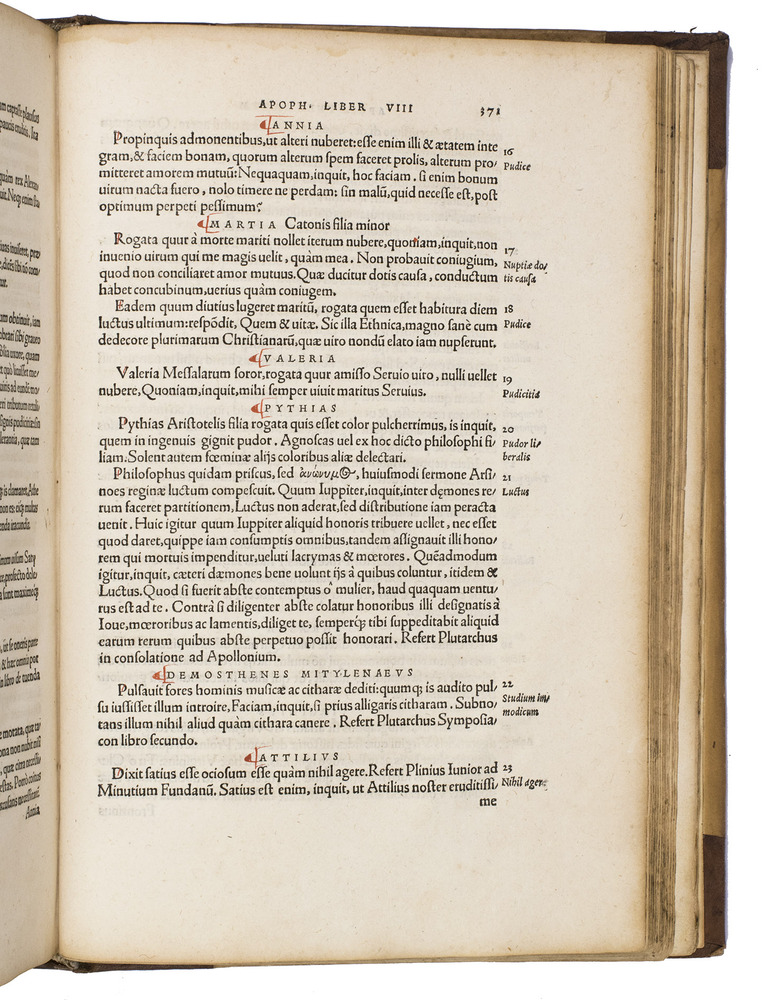 APOPH. LIBER VIII 371
ANNIA
Propinquis admonentibus, ut alteri nuberet: esse enim illi & ætatem inte
gram, & faciem bonam, quorum alterum spem faceret prolis, alterum pro/
mitteret amorem mutuũ: Nequaquam, inquit, hoc faciam. si enim bonum
uirum nacta fuero, nolo timere ne perdam: sin malũ, quid necesse est, post
optimum perpeti pessimum?
16
Pudice
MARTIA Catonis filia minor
Rogata quur à morte mariti nollet iterum nubere, quoniam, inquit, non
inuenio uirum qui me magis uelit, quàm mea. Non probauit coniugium,
quod non conciliaret amor mutuus. Quæ ducitur dotis causa, conductum
habet concubinum, uerius quàm coniugem.
17
Nuptiæ do/
tis causa
Eadem quum diutius lugeret maritũ, rogata quem esset habitura diem
luctus ultimum: respõdit, Quem & uitæ. Sic illa Ethnica, magno sanè cum
dedecore plurimarum Christianarũ, quæ uiro nondũ elato iam nupserunt.
18
Pudice
VALERIA
Valeria Messalarum soror, rogata quur amisso Seruio uiro, nulli uellet
nubere, Quoniam, inquit, mihi semper uiuit maritus Seruius.
19
Pudicitia
PYTHIAS
Pythias Aristotelis filia rogata quis esset color pulcherrimus, is inquit,
quem in ingenuis gignit pudor. Agnoscas uel ex hoc dicto philosophi fi/
liam. Solent autem fœminæ alijs coloribus aliæ delectari.
20
Pudor li/
beralis
Philosophus quidam priscus, sed ἀνώνυμος, huiusmodi sermone Arsi/
noes reginæ luctum compescuit. Quum Iuppiter, inquit, inter dęmones re/
rum faceret partitionem, Luctus non aderat, sed distributione iam peracta
uenit. Huic igitur quum Iuppiter aliquid honoris tribuere uellet, nec esset
quod daret, quippe iam consumptis omnibus, tandem assignauit illi hono/
rem qui mortuis impenditur, ueluti lacrymas & mœrores. Quẽadmodum
igitur, inquit, cæteri dæmones bene uolunt ijs à quibus coluntur, itidem &
Luctus. Quod si fuerit abste contemptus ô mulier, haud quaquam uentu/
rus est ad te. Contrà si diligenter abste colatur honoribus illi designatis à
Ioue, mœroribus ac lamentis, diliget te, semperq; tibi suppeditabit aliquid
earum rerum quibus abste perpetuo possit honorari. Refert Plutarchus
in consolatione ad Apollonium.
21
Luctus
DEMOSTHENES MITYLENAEVS
Pulsauit fores hominis musicæ ac citharæ dediti: quumq; is audito pul/
su iussisset illum introire, Faciam, inquit, si prius alligaris citharam. Subno/
tans illum nihil aliud quàm cithara canere. Refert Plutarchus Symposia/
con libro secundo.
22
Studium im/
modicum
ATTILIVS
Dixit satius esse ociosum esse quàm nihil agere. Refert Plinius Iunior ad
Minutium Fundanũ. Satius est enim, inquit, ut Attilius noster eruditissi/
me
23
Nihil agere